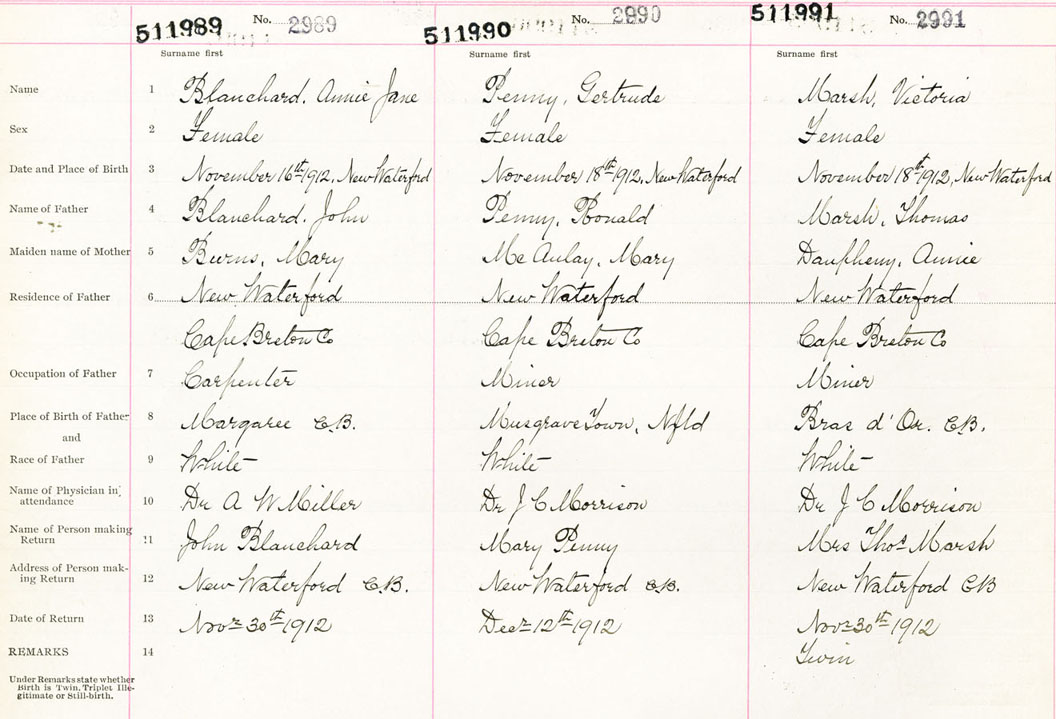 511989 No. 2989 511990 No. 2990 511991 No. 2991
Surname first Surname first Surname first
Name 1 Blanchard, Annie Jane Penny, Gertrude Marsh, Victoria
Sex 2 Female Female Female
Date and Place of Birth 3 November 16th 1912, New Waterford November 18th 1912, New Waterford November 18th 1912, New Waterford
Name of Father 4 Blanchard, John Penny, Ronald Marsh, Thomas
Maiden name of Mother 5 Burns, Mary Mc Aulay, Mary Daupheny, Annie
Residence of Father 6 New Waterford New Waterford New Waterford
Cape Breton Co Cape Breton Co Cape Breton Co
Occupation of Father 7 Carpenter Miner Miner
Place of Birth of Father 8 Margaree C.B. Musgrave Town, Nfld Bras d'Or. C.B.
and
Race of Father 9 White White White
Name of Physician in attendance 10 Dr A W Miller Dr J C Morrison Dr J C Morrison
Name of Person making Return 11 John Blanchard Mary Penny Mrs Thos Marsh
Address of Person mak-
ing Return 12 New Waterford C.B. New Waterford C.B. New Waterford CB
Date of Return 13 Novr 30th 1912 Decr 12th 1912 Novr 30th 1912
REMARKS 14 Twin
Under Remarks state whether
Birth is Twin, Triplet Ille-
gitimate or Still-birth.